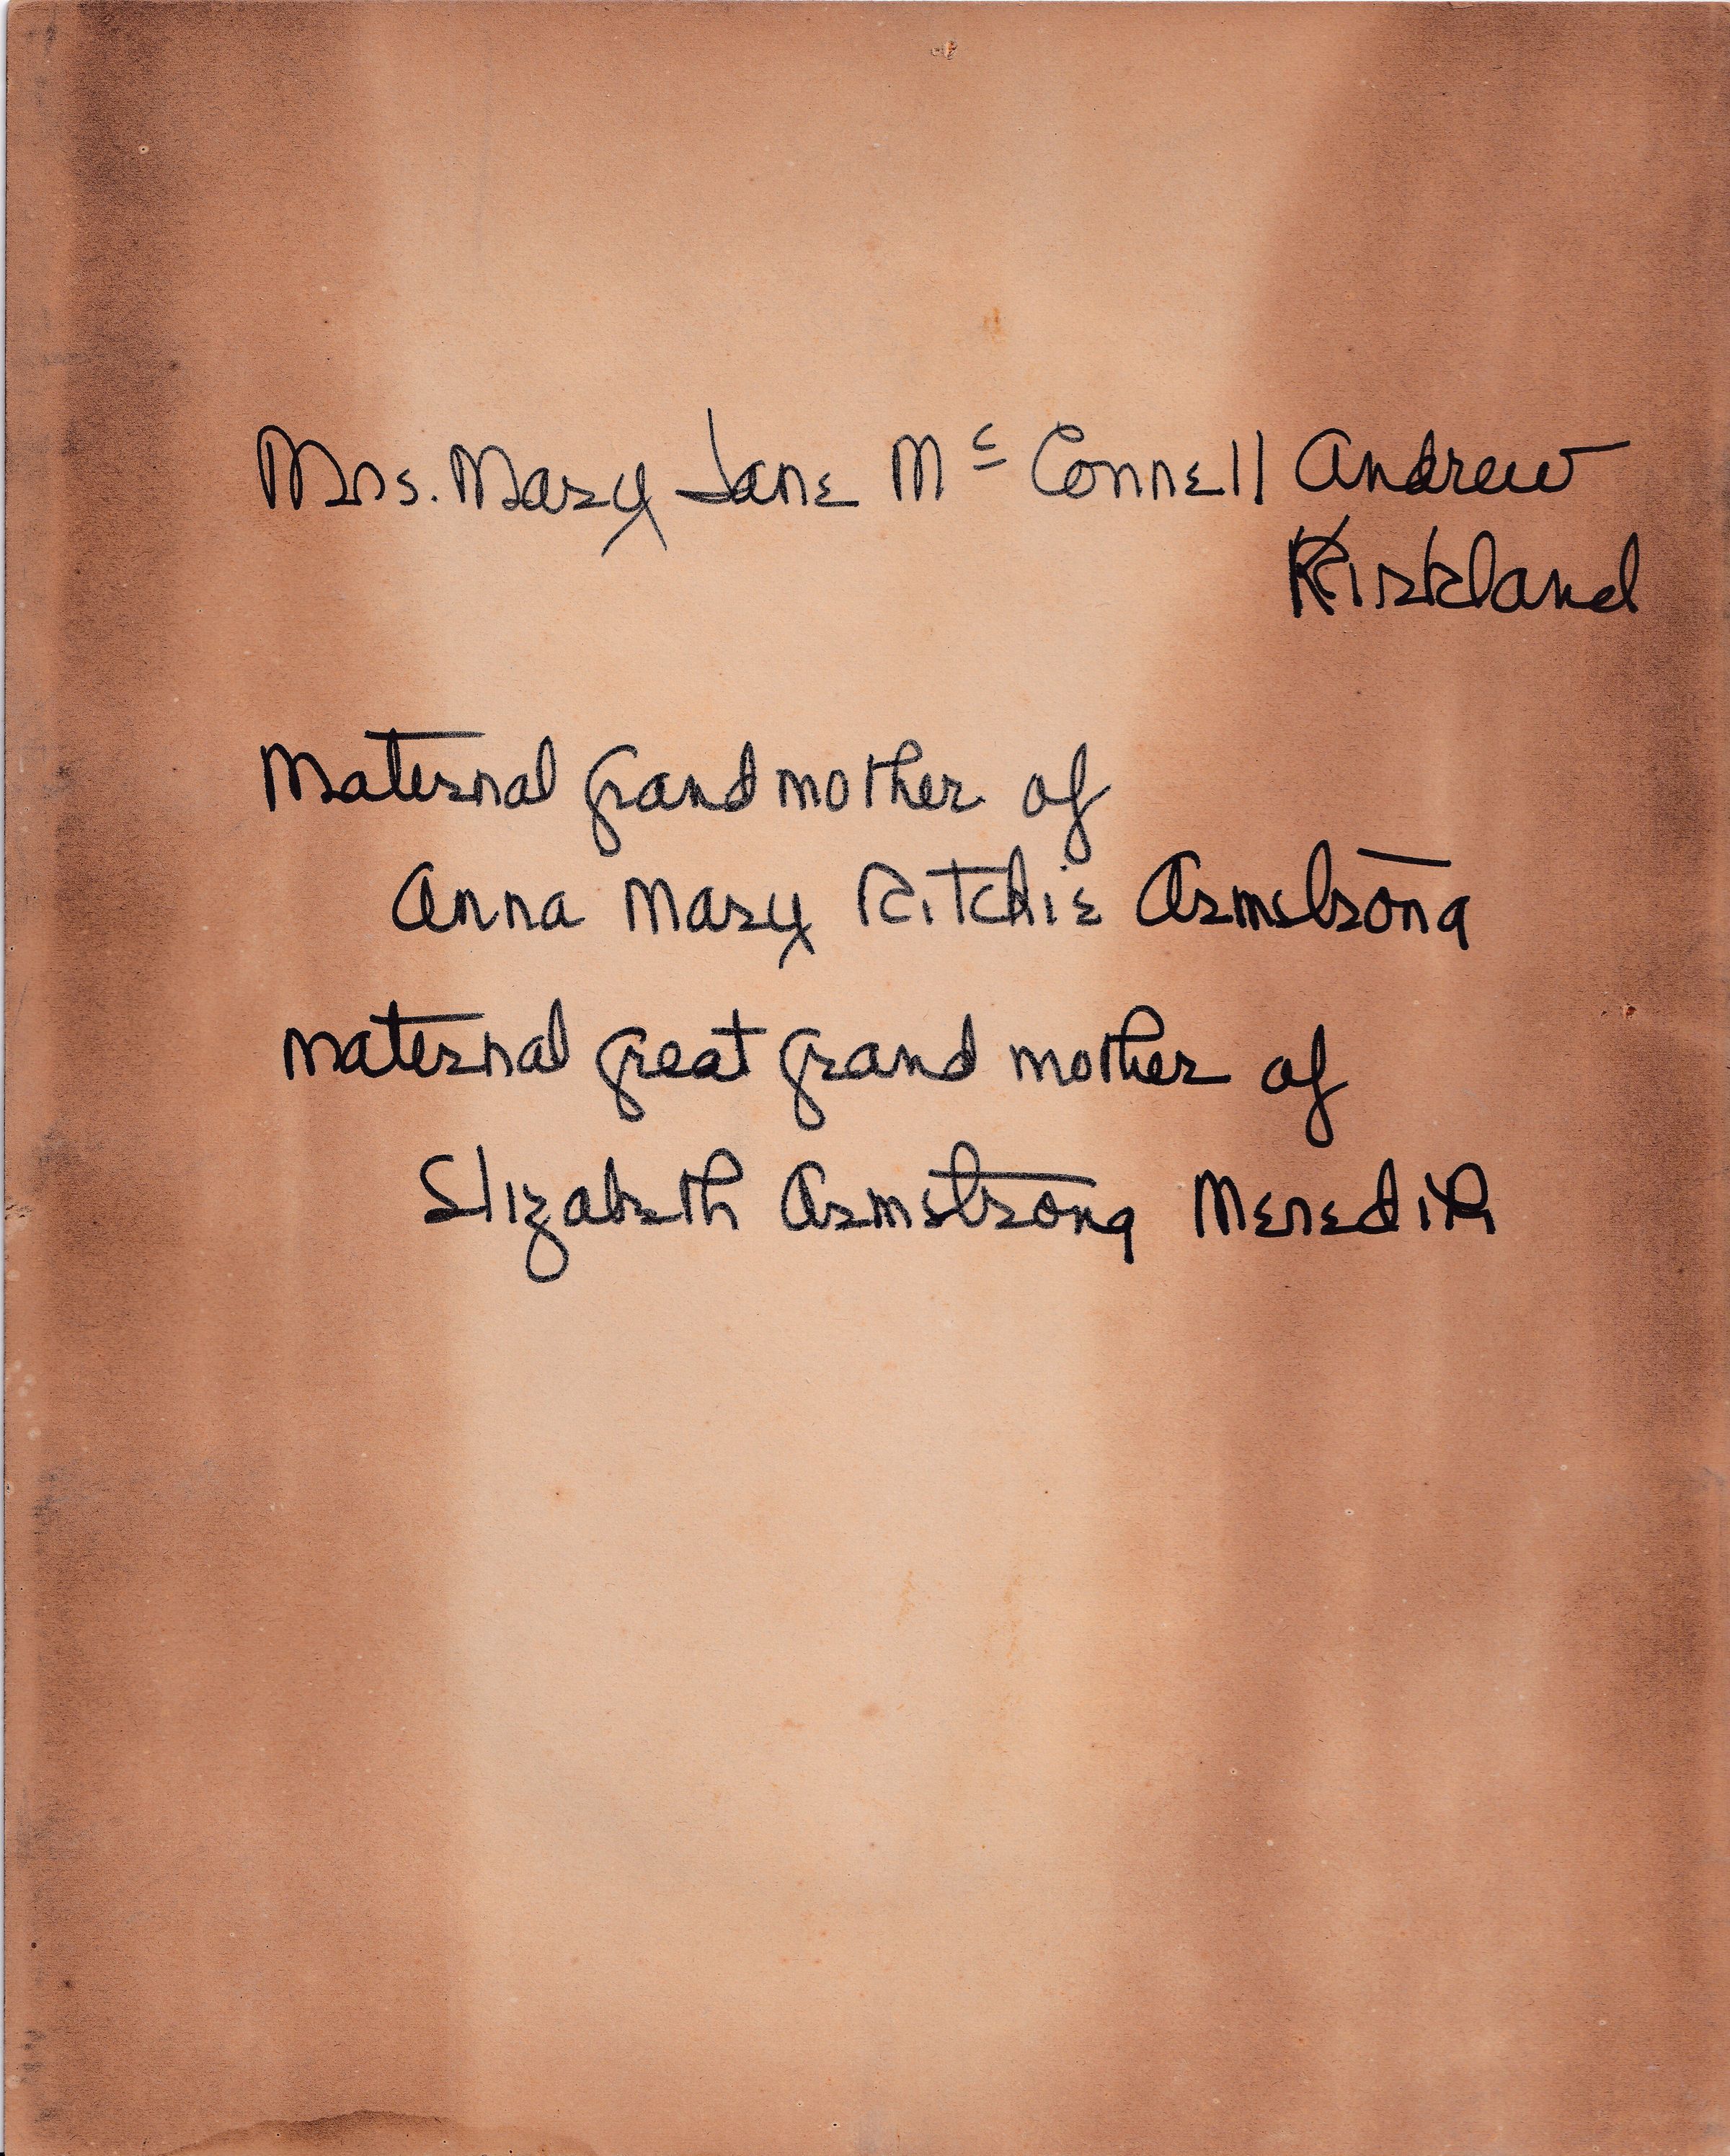 Mrs. Mary Jane Mc Connell Andrew
Kirkland
Maternal grandmother of
Anna Mary Ritchie Armstrong
maternal great grand mother of
Elizabeth Armstrong Meredith